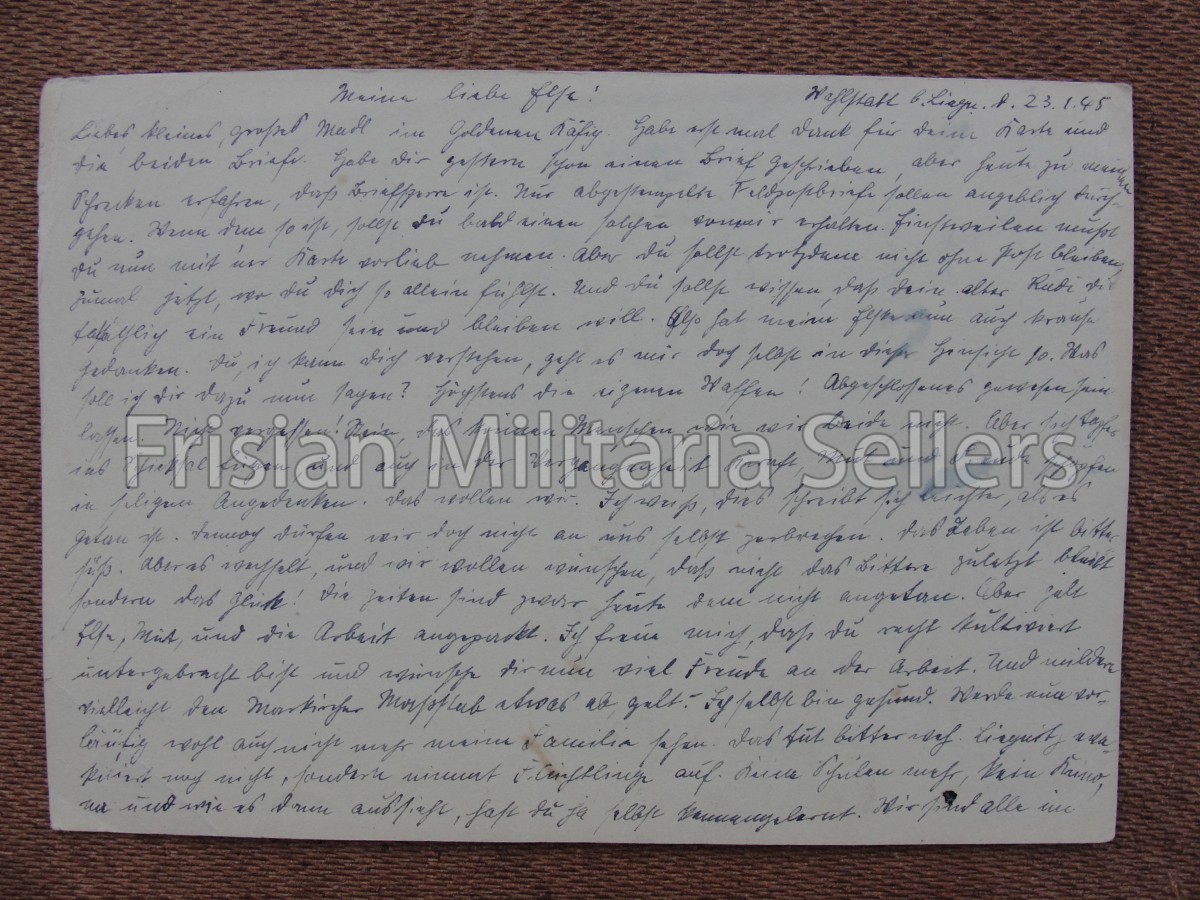 Meine liebe Else! Wahlstatt b. Liegn. d. 23.1.45
Liebes, kleines, großes Madl im Goldenen Käfig. Habe erst mal Dank für deine Karte und
die beiden Briefe. Habe dir gestern schon einen Brief geschrieben, aber heute zu meinem
Schrecken erfahren, daß Briefsperre ist. Nur abgestempelte Feldpostbriefe sollen angeblich durch-
gehen. Wenn dem so ist, sollst du bald einen solchen von mir erhalten. Einstweilen mußt
du nun mit ner Karte vorlieb nehmen. Aber du sollst trotzdem nicht ohne Post bleiben,
zumal jetzt, wo du dich so allein fühlst. Und du sollst wissen, daß dein alter Rudi dir
ein Freund sein und bleiben will. Also hat meine Else nun auch krause
Gedanken. Du, ich kann dich verstehen, geht es mir doch selbst in dieser Hinsicht so. Was
soll ich dir dazu nun sagen? Höchstens die eigenen Waffen! Abgeschlossenes gewesen sein
lassen. Nicht vergessen! Nein, das können Menschen wie wir beide nicht. Aber sich tapfer
ins Schicksal fügen und auch in der Vergangenheit Kraft, Mut und Freude schöpfen
in seligem Angedenken. Das wollen wir. Ich weiß, dies schreibt sich leichter, als es
getan ist. Dennoch dürfen wir doch nicht an uns selbst zerbrechen. Das Leben ist bitter
süß. Aber es wechselt, und wir wollen wünschen, daß nicht das Bittere zuletzt bleibt
sondern das Glück! Die Zeiten sind zwar heute dem nicht angetan. Aber gelt
Else, Mut, und die Arbeit angepackt. Ich freue mich, daß du recht kultiviert
untergebracht bist und wünsche dir nun viel Freude an der Arbeit. Und mildere
vielleicht den Markircher Maßstab etwas ab, gelt? Ich selbst bin gesund. Werde nun vor-
läufig wohl auch nicht mehr meine Familie sehen. Das tut bitter weh. Liegnitz eva-
kuiert noch nicht, sondern nimmt Flüchtlinge auf. Keine Schulen mehr, kein Kino,
na und wie es dann aussieht, hast du ja selbst kennengelernt. Wir sind alle im
Frisian Militaria Sellers